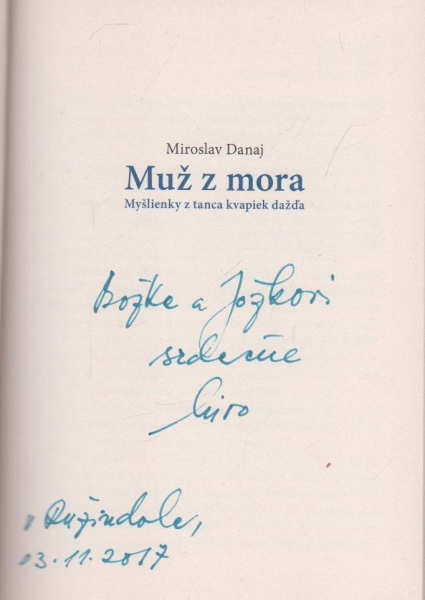 Miroslav Danaj
Muž z mora
Myšlienky z tanca kvapiek dažďa
Božke a Jožkovi
srdečne
Miro
v Ružindole,
03.11.2017